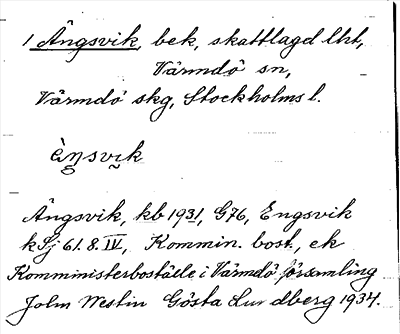 1 Ängsvik, bek, skattlagd lht,
Värmdö sn,
Värmdö skg, Stockholms l.
èŋsvik
Ängsvik, kb 1931, G76, Engsvik
61.8.IV, Kommin. bost., ek
Komministerboställe i Värmdö församling
John Westin Gösta Lundberg 1934.